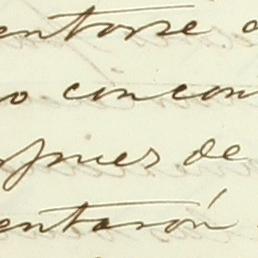 entorse
o concon
spues de
entarón